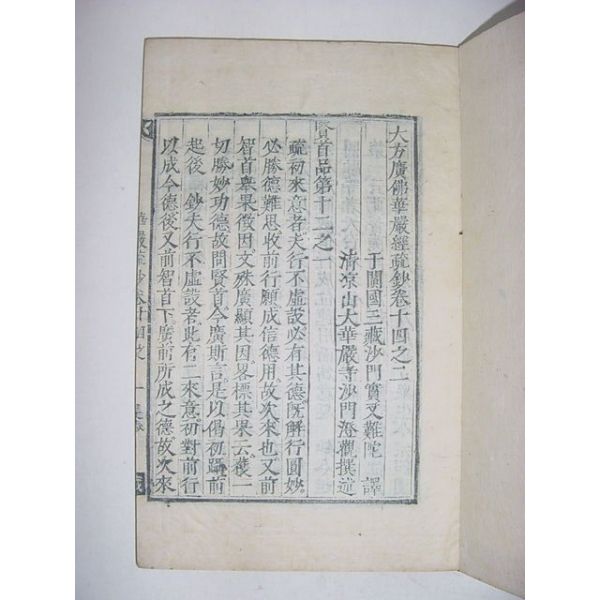 大方廣佛華嚴經疏鈔卷十四之二
于闐國三藏沙門實叉難陀譯
清凉山大華嚴寺沙門澄觀撰述
賢首品第十二之一
疏初來意者夫行不虛設必有其德旣解行圓妙
必勝德難思收前行願成信德用故次來也又前
智首舉果徵因文殊廣顯其因畧標其果云獲一
切勝妙功德故問賢首今廣斯言是以偈初躡前
起後 鈔夫行不虛設者此有二來意初對前行
以成今德後又前智首下廣前所成之德故次來
華嚴疏鈔卷十四之二 一